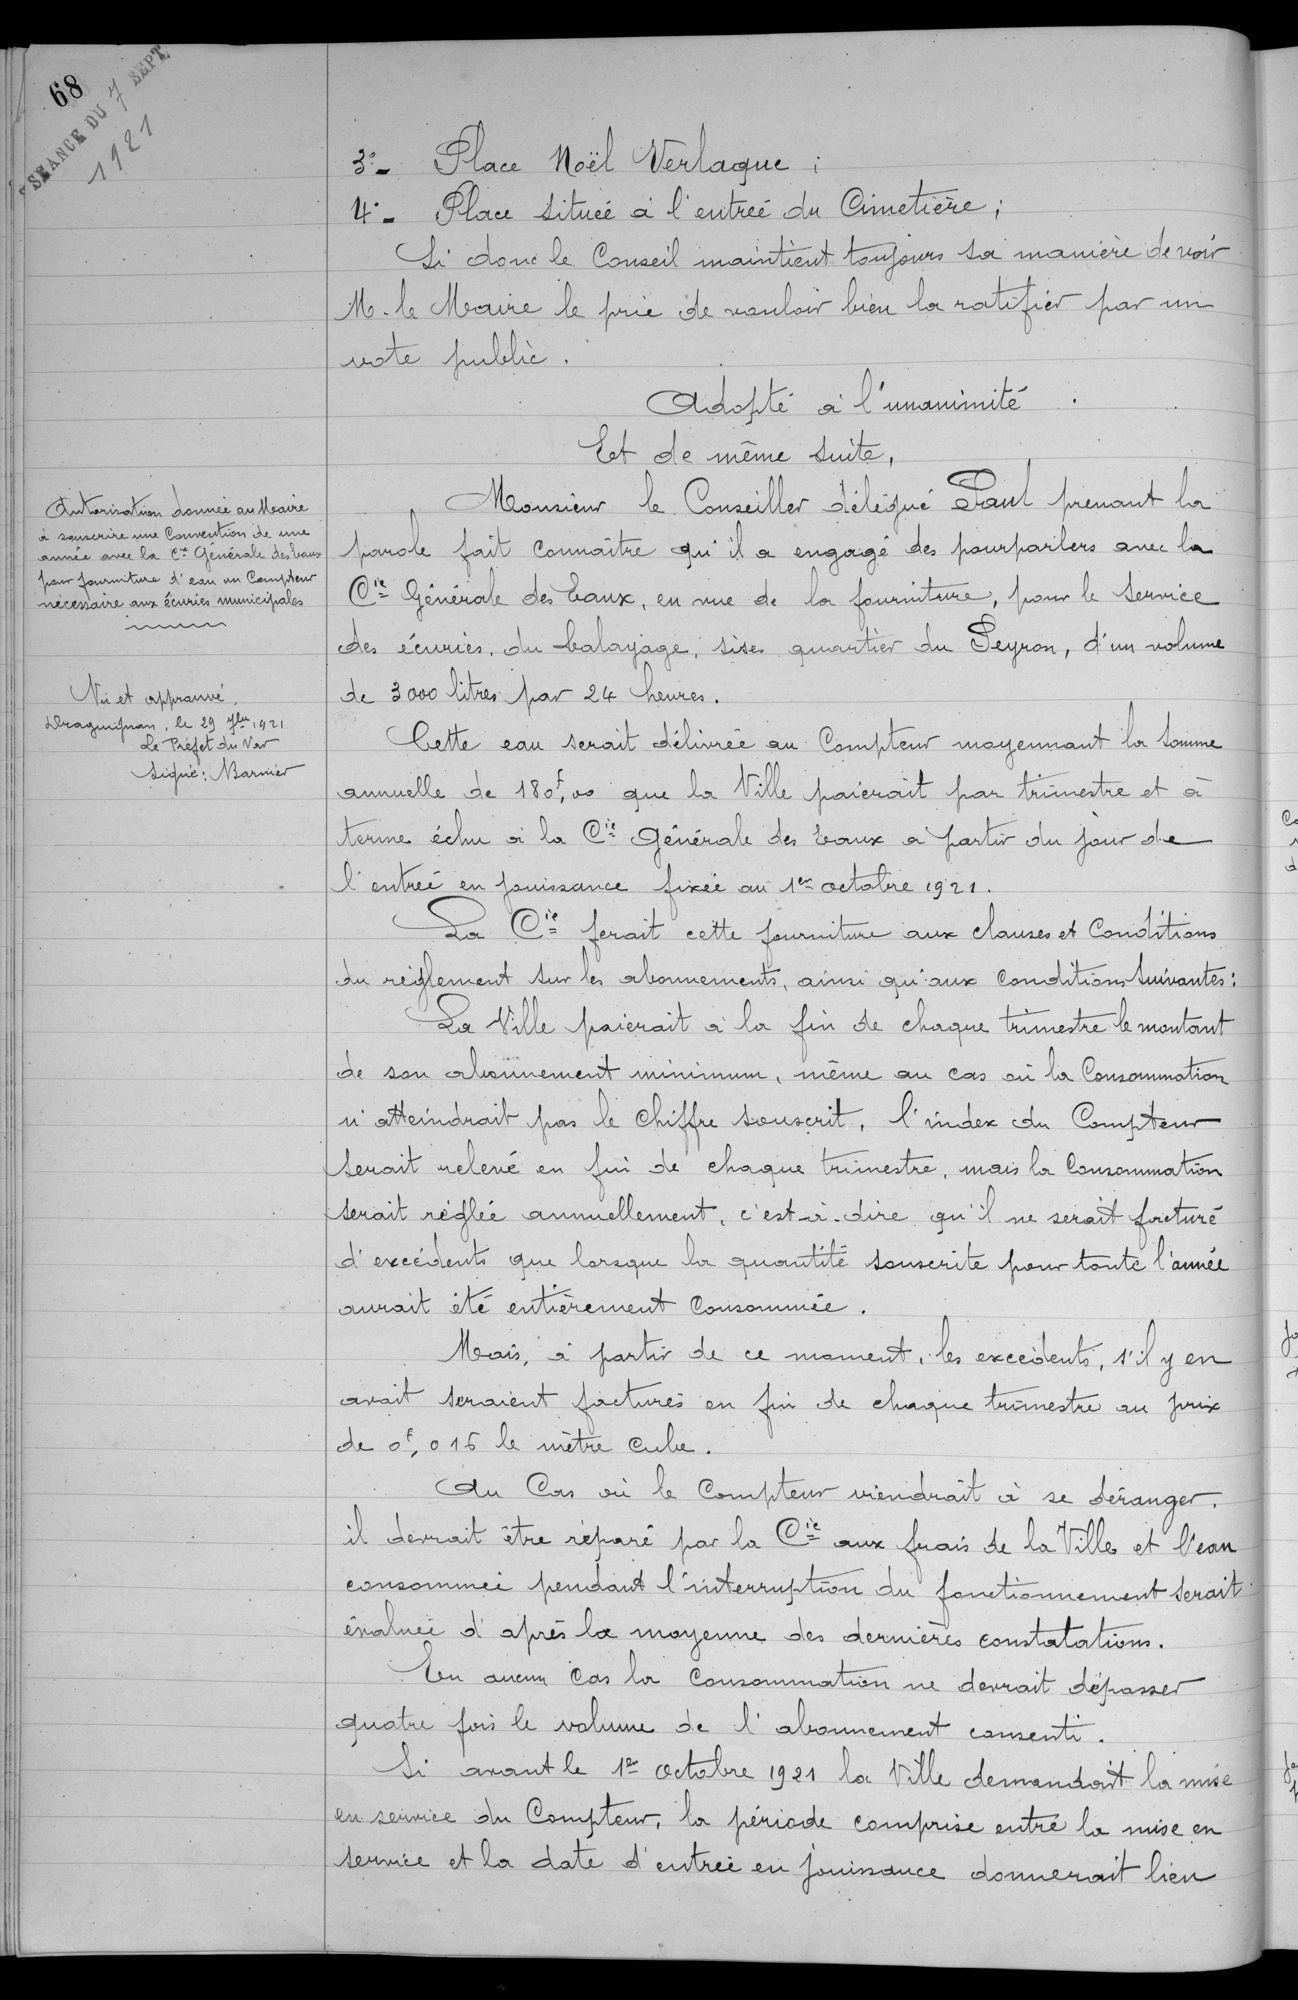 68
SEANCE DU 7 SEPT.
1921
3°- Place Noël Verlaque ;
4°- Place située à l'entrée du Cimetière ;
Si donc le Conseil maintient toujours sa manière de voir
M. le Maire le prie de vouloir bien la ratifier par un
vote public.
Adopté à l'unanimité.
Et de même suite,
Autorisation donnée au Maire
à souscrire une Convention de une
année avec la Cie Générale des Eaux
pour fourniture d'eau au Compteur
nécessaire aux écuries municipales
Vu et approuvé.
Draguignan, le 29 7bre 1921
Le Préfet du Var
Signé : Barnier
Monsieur le Conseiller délégué Paul prenant la
parole fait connaître qu'il a engagé des pourparlers avec la
Cie Générale des Eaux, en vue de la fourniture, pour le service
des écuries, du balayage, sises quartier du Peyron, d'un volume
de 3000 litres par 24 heures.
Cette eau serait délivrée au Compteur moyennant la somme
annuelle de 180f,00 que la Ville paierait par trimestre et à
terme échu à la Cie Générale des Eaux à partir du jour de
l'entrée en jouissance fixée au 1er octobre 1921.
La Cie ferait cette fourniture aux clauses et Conditions
du règlement sur les abonnements, ainsi qu'aux conditions suivantes :
La Ville paierait à la fin de chaque trimestre le montant
de son abonnement minimum, même au cas où la Consommation
n'atteindrait pas le chiffre souscrit, l'index du Compteur
serait relevé en fin de chaque trimestre, mais la Consommation
serait réglée annuellement, c'est-à-dire qu'il ne serait facturé
d'excédents que lorsque la quantité souscrite pour toute l'année
aurait été entièrement Consommée.
Mais, à partir de ce moment, les excédents, s'il y en
avait seraient facturés en fin de chaque trimestre au prix
de 0f,016 le mètre cube.
Au Cas où le Compteur viendrait à se déranger,
il devrait être réparé par la Cie aux frais de la Ville et l'eau
consommée pendant l'interruption du fonctionnement serait
évaluée d'après la moyenne des dernières constatations.
En aucun Cas la Consommation ne devrait dépasser
quatre fois le volume de l'abonnement consenti.
Si avant le 1er octobre 1921 la Ville demandait la mise
en service du Compteur, la période comprise entre la mise en
service et la date d'entrée en jouissance donnerait lieu